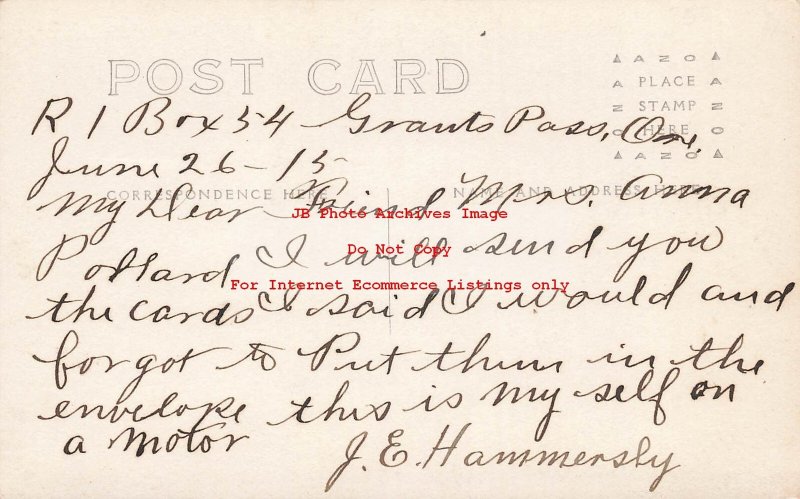 POST CARD
▲ A Z O ▲
A PLACE A
Z STAMP Z
O HERE O
▲ A Z O ▲
R 1 Box 54 Grants Pass, Ore.
June 26-15
CORRESPONDENCE HERE
NAME AND ADDRESS HERE
My Dear Friend Mrs. Anna
JB Photo Archives Image
Pollard I will send you
Do Not Copy
For Internet Ecommerce Listings only
the cards I said I would and
forgot to Put them in the
envelope this is my self on
a motor
J. E. Hammersly